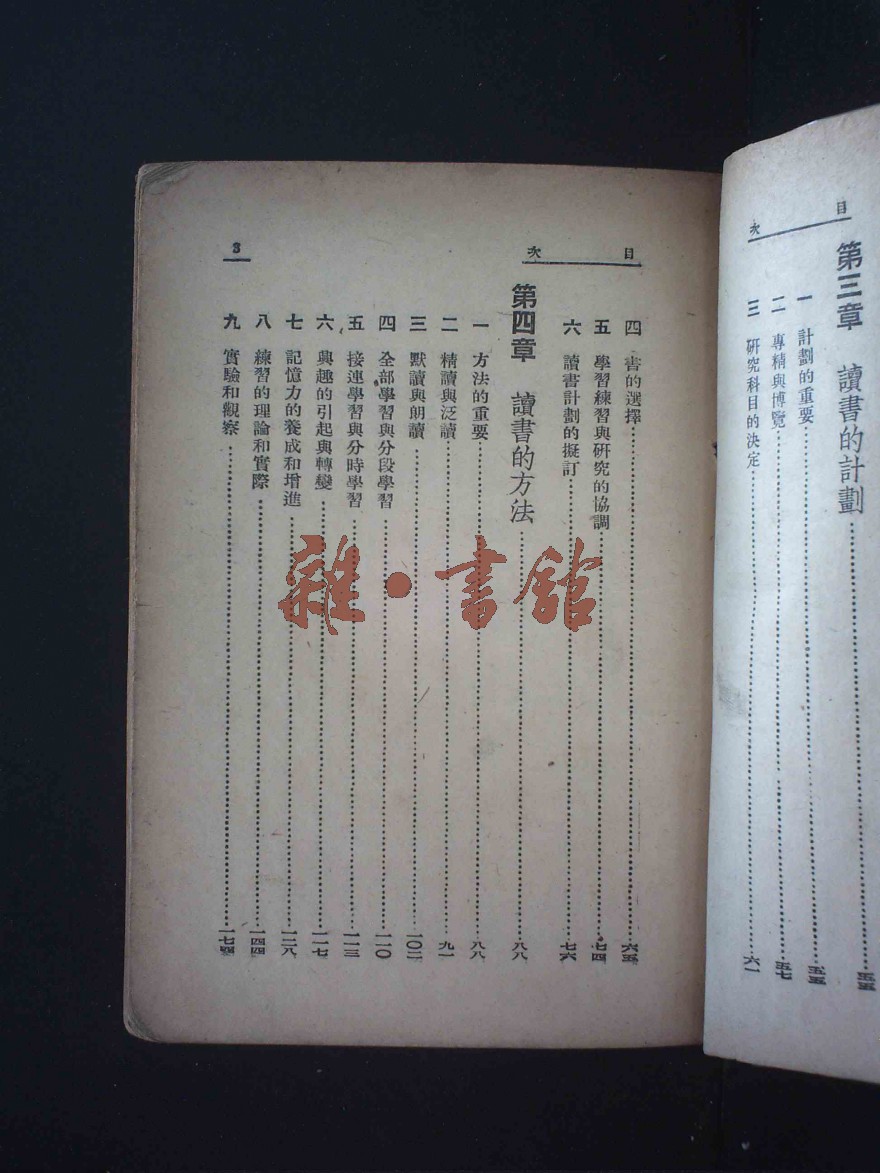 目次
第三章 讀書的計劃……五五
一 計劃的重要……五五
二 專精與博覽……五七
三 研究科目的決定……六一
目次
四 書的選擇……六五
五 學習練習與研究的協調……七四
六 讀書計劃的擬訂……七六
第四章 讀書的方法……八八
一 方法的重要……八八
二 精讀與泛讀……九一
三 默讀與朗讀……一〇二
四 全部學習與分段學習……一一〇
五 接連學習與分時學習……一一三
六 興趣的引起與轉變……一一七
七 記憶力的養成和增進……一二八
八 練習的理論和實際……一四四
九 實驗和觀察……一七四
3
雜·書館